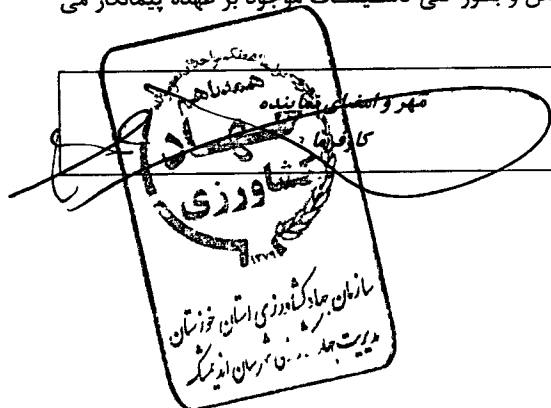 و بطور کلی تاسیسات موجود بر عهده پیمانکار می
مهر و امضای نماینده
کارفرما
همه با هم
جهاد
کشاورزی
۱۳۷۹
سازمان جهاد کشاورزی استان خوزستان
مدیریت جهاد کشاورزی شهرستان اندیمشک